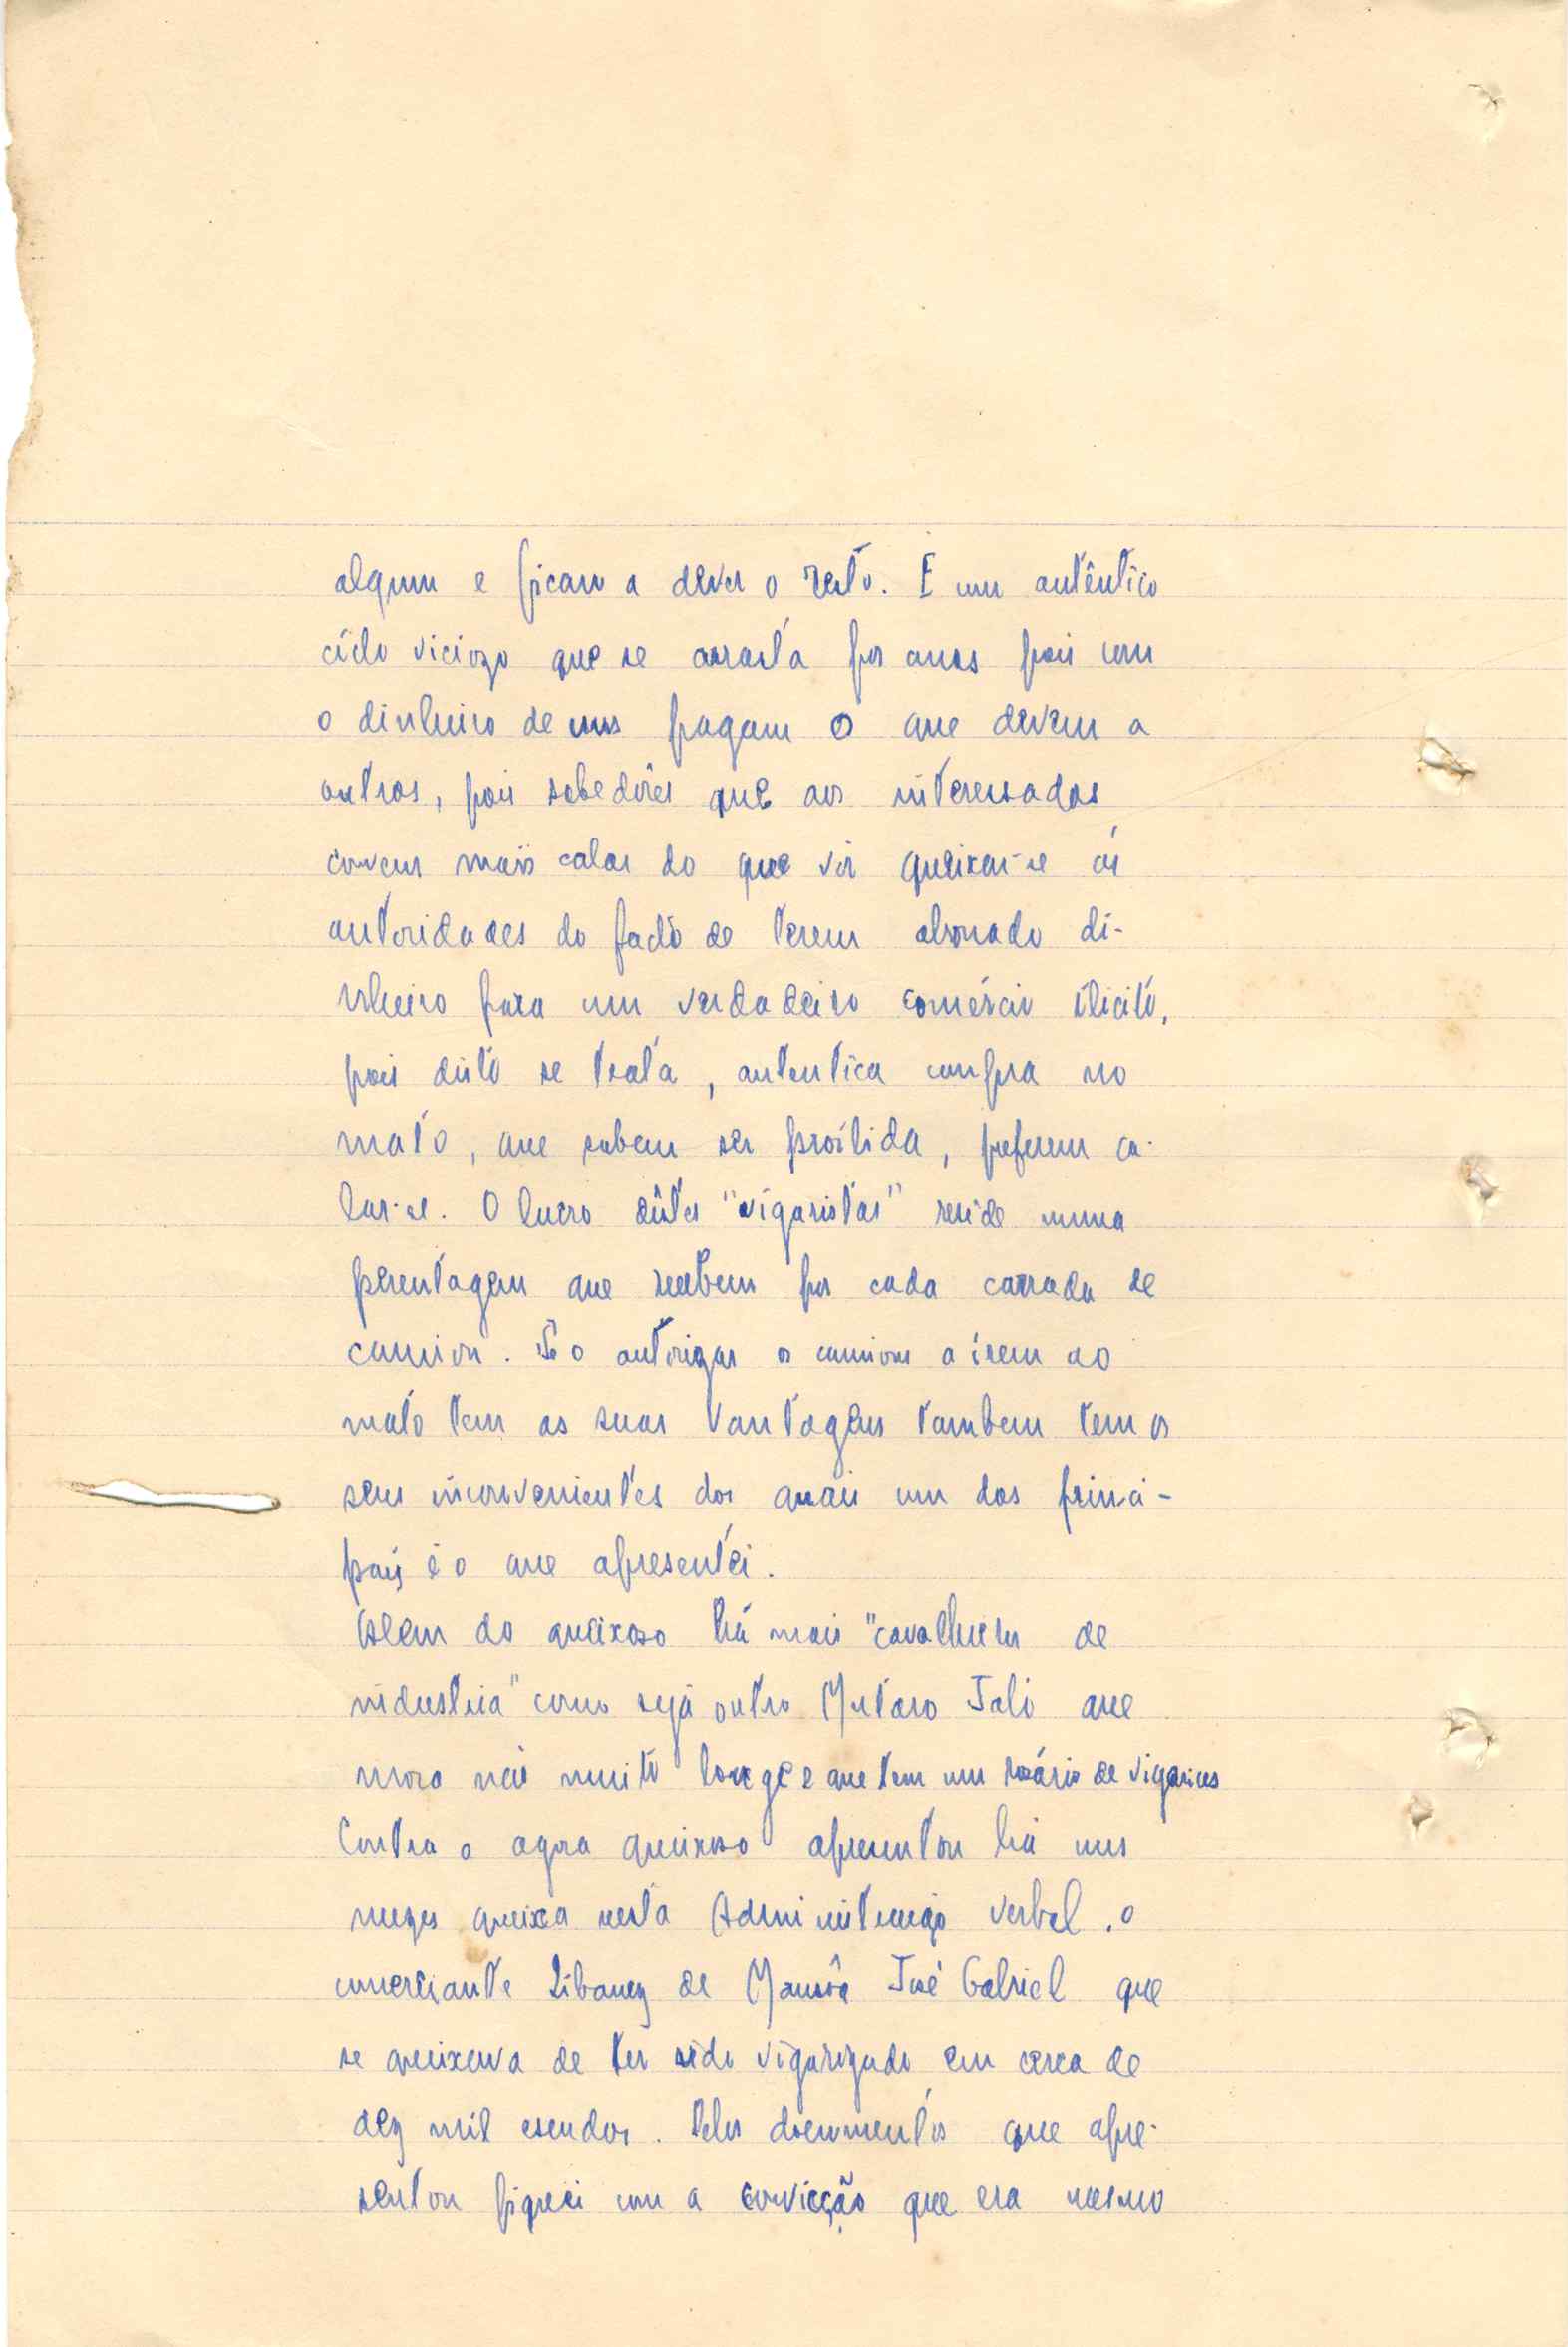 algum e ficam a dever o resto. É um autêntico
ciclo viciozo que se arrasta por anos pois com
o dinheiro de uns pagam o que devem a
outros, pois sabedôres que aos interessados
convem mais calar do que vir queixar-se ás
autoridades do facto de terem abonado di-
nheiro para um verdadeiro comércio ilicito,
pois disto se trata, autentica compra no
mato, que sabem ser proibida, preferem ca-
lar-se. O lucro dêstes "vigaristas" reside numa
percentagem que recebem por cada carrada de
camion. Se o autorizar os camions a irem ao
mato tem as suas vantagens tambem tem os
seus inconvenientes dos quais um dos princi-
pais é o que apresentei.
Alem do queixoso há mais "cavalheiros de
industria" como seja outro Mutaro Jaló que
mora não muito longe e que tem um rosário de vigarices
Contra o agora queixoso apresentou há uns
mezes queixa nesta Administração verbal, o
comerciante Libanez de Mansôa José Gabriel que
se queixava de ter sido vigarizado em cerca de
dez mil escudos. Pelos documentos que apre-
sentou fiquei com a convicção que era mesmo